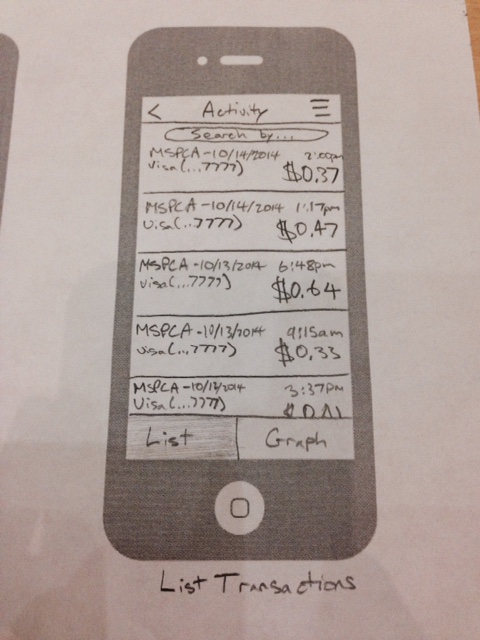 < Activity
Search by...
MSPCA - 10/14/2014 2:00pm
Visa (...7777) $0.37
MSPCA - 10/14/2014 1:17pm
Visa (...7777) $0.47
MSPCA - 10/13/2014 6:48pm
Visa (...7777) $0.64
MSPCA - 10/13/2014 9:15am
Visa (...7777) $0.33
MSPCA - 3:37pm
Visa (...7777)
List Graph
List Transactions